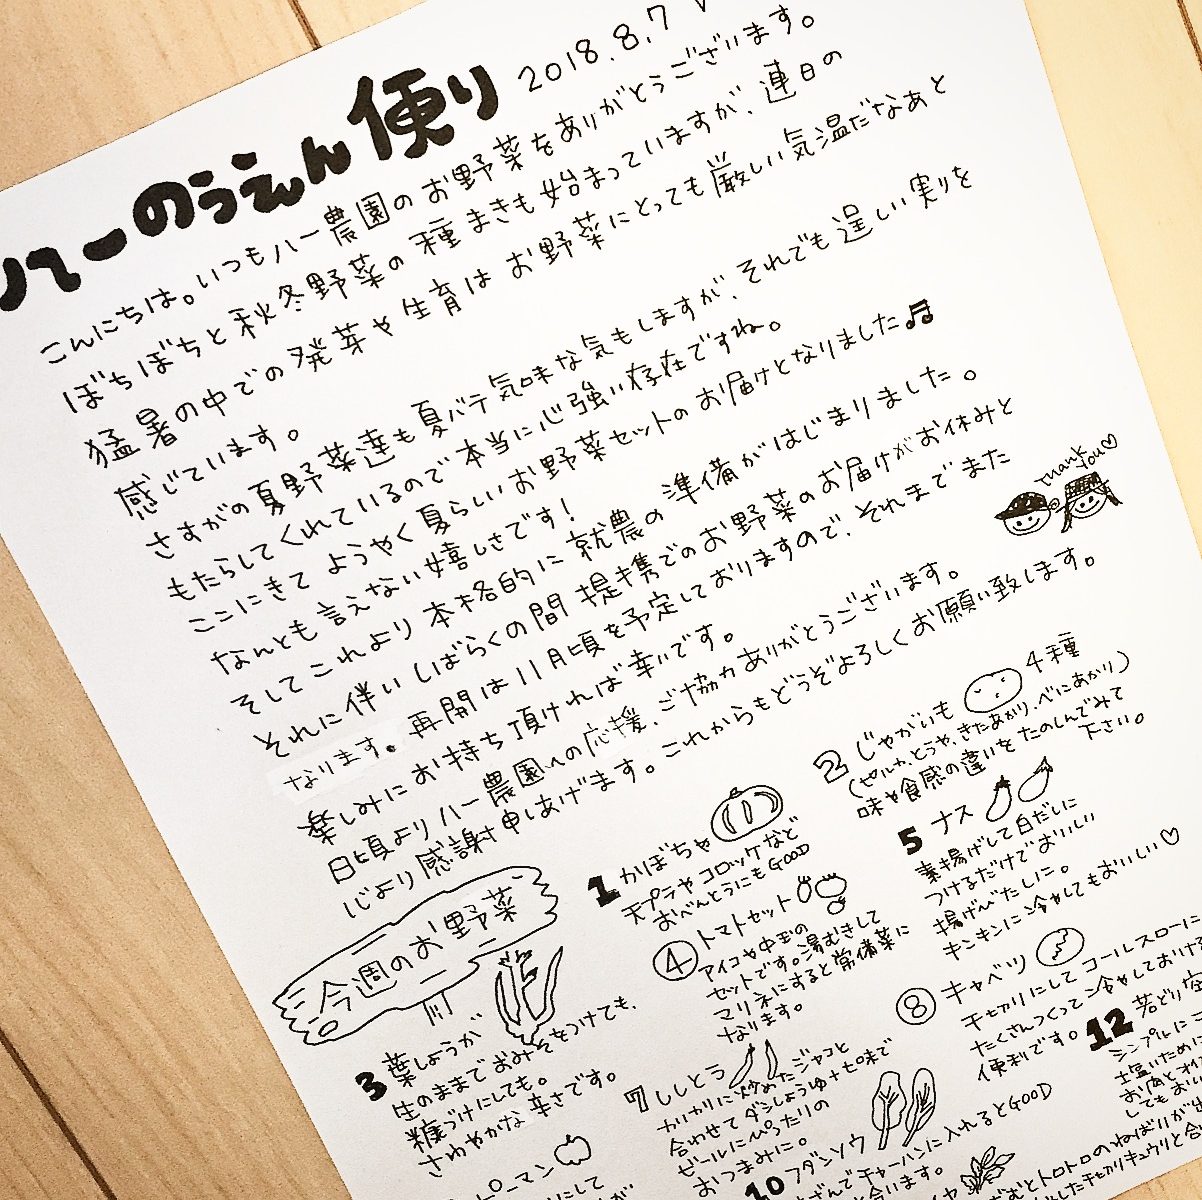 ハーのうえん便り 2018.8.7
こんにちは。いつもハー農園のお野菜をありがとうございます。
ぼちぼちと秋冬野菜の種まきも始まっていますが、連日の
猛暑の中での発芽や生育はお野菜にとっても厳しい気温だなあと
感じています。
さすがの夏野菜達も夏バテ気味な気もしますが、それでも逞しい実りを
もたらしてくれているので本当に心強い存在ですね。
ここにきてようやく夏らしいお野菜セットのお届けとなりました♬
なんとも言えない嬉しさです!
そしてこれより本格的に就農の準備がはじまりました。
それに伴いしばらくの間提携でのお野菜のお届けがお休みと
なります。再開は11月頃を予定しておりますので、それまでまた
楽しみにお待ち頂ければ幸いです。
日頃よりハー農園への応援、ご協力ありがとうございます。
心より感謝申しあげます。これからもどうぞよろしくお願い致します。
Thank
you♡
今週のお野菜
1 かぼちゃ
天プラやコロッケなど
おべんとうにもGOOD
2 じゃがいも 4種
(ピルカ、とうや、きたあかり、べにあかり)
味や食感の違いをたのしんでみて
下さい。
3 葉しょうが
生のままでおみそをつけても、
糠づけにしても。
さわやかな辛さです。
④ トマトセット
アイコや中玉の
セットです。湯むきして
マリネにすると常備菜に
なります。
5 ナス
素揚げして白だしに
つけるだけでおいしい
揚げびたしに。
キンキンに冷やしてもおいしい♡
ピーマン
にして
7 ししとう
カリカリに炒めたジャコと
合わせてダシしょうゆ+七味で
ビールにぴったりの
おつまみに。
⑧ キャベツ
千切りにしてコールスローに
たくさんつくって冷やしておける
便利です。
10 フダンソウ
チャーハンに入れるとGOOD
合います。
12 若どり
シンプルに
塩いため
お肉と
しても
おとトロトロのねばりが
した千切りキュウリと合